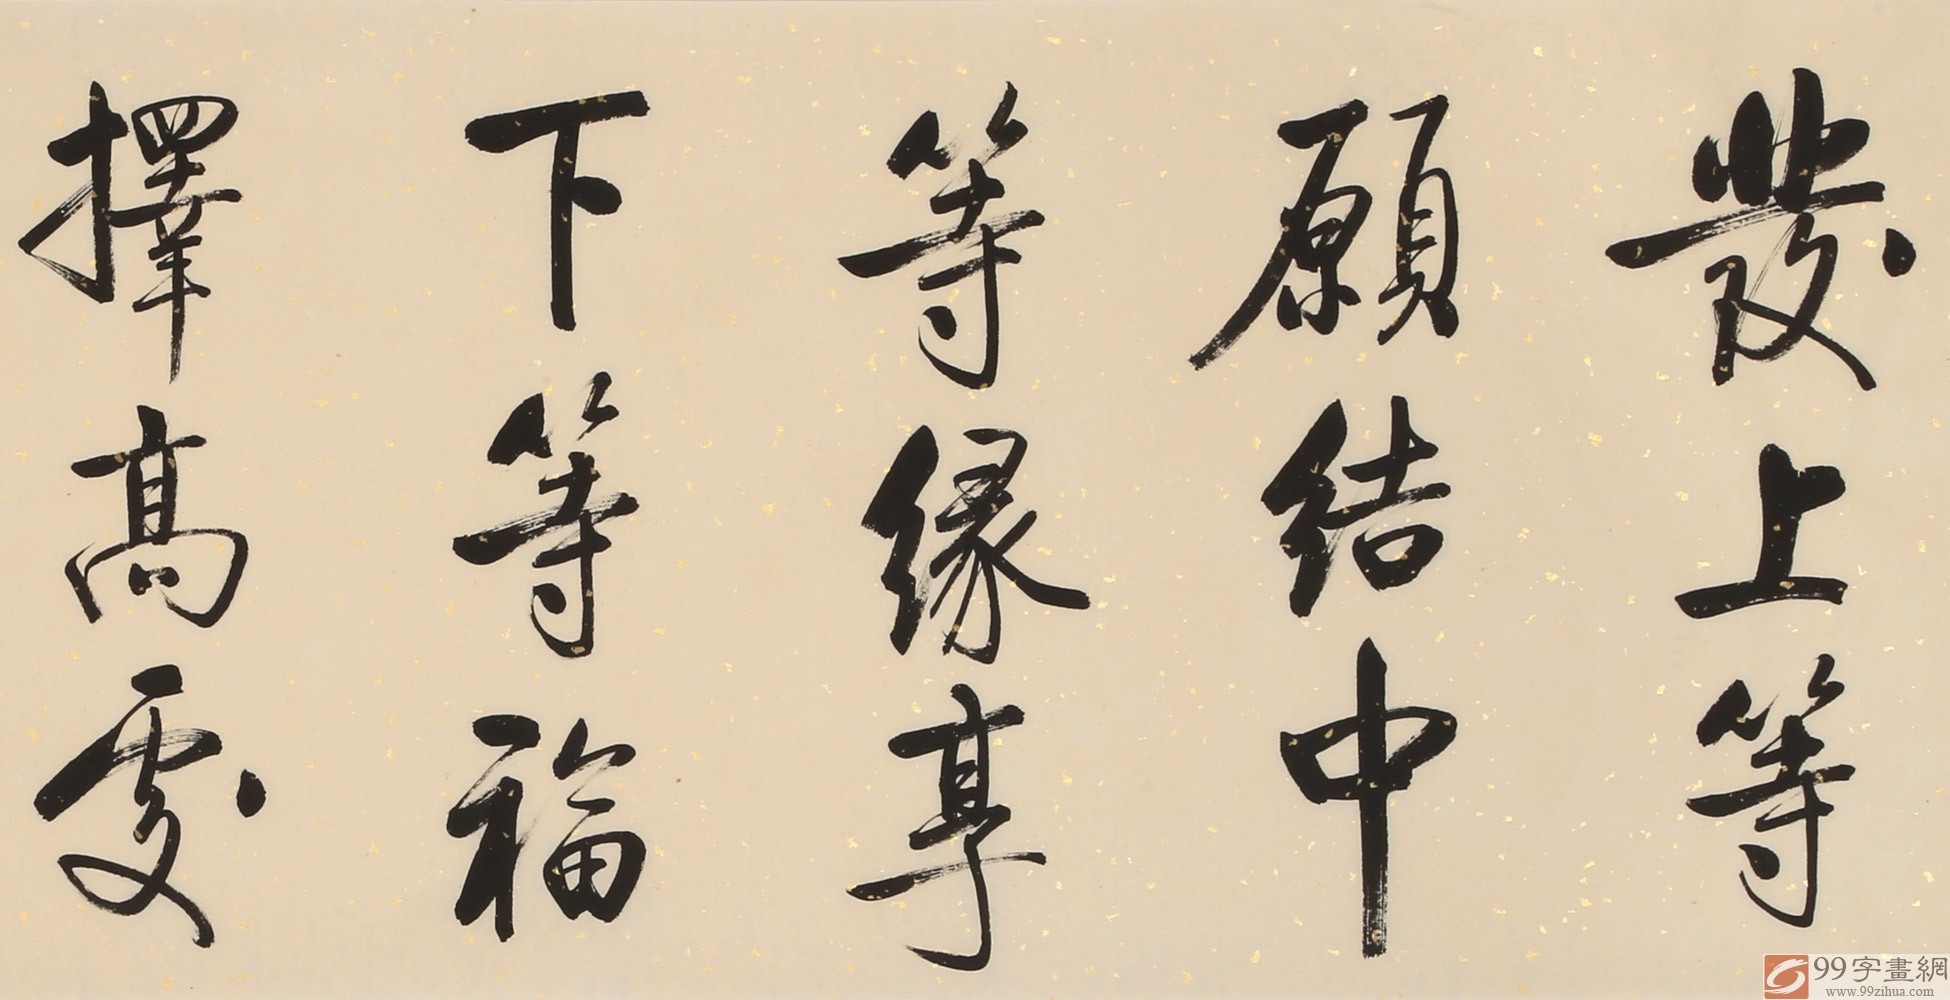 發上等
願結中
等緣享
下等福
擇高處
99字畫網
www.99zihua.com